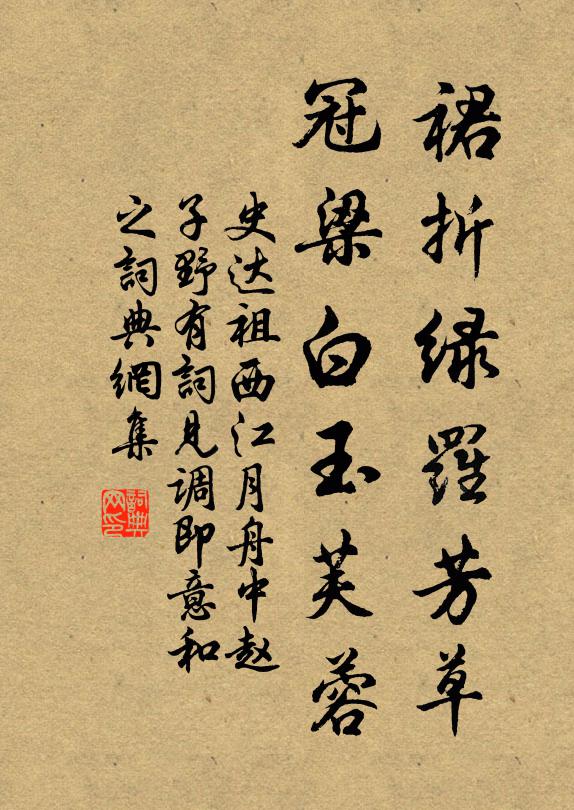 裙折绿羅芳草
冠梁白玉芙蓉
史达祖西江月舟中赵
子野有詞見調即意和
之詞典網集
詞典网印